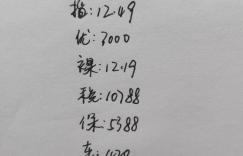 指:12.49
优:3000
裸:12.19
税:10788
保:5388